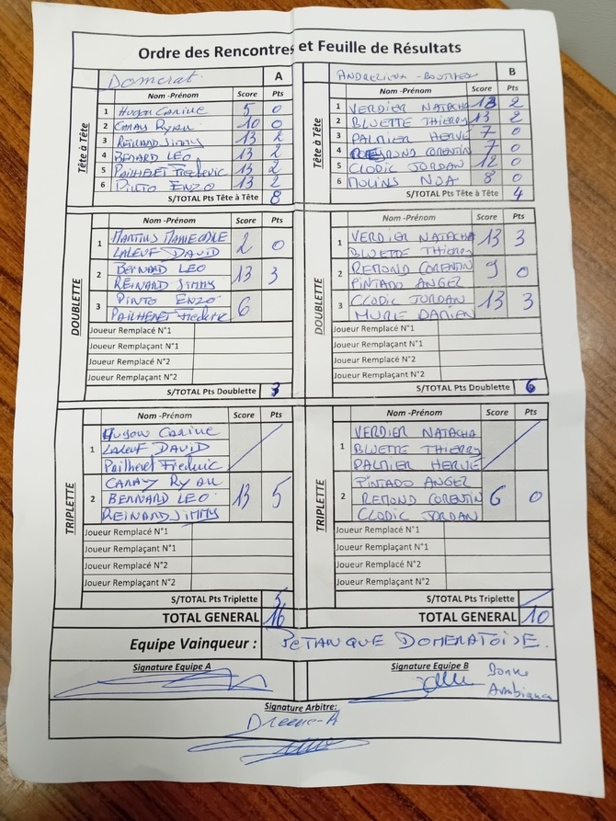 Ordre des Rencontres et Feuille de Résultats
Domerat. A
Nom -Prénom Score Pts
Tête à Tête
1 Hugon Carine 5 0
2 Camay Ryan 10 0
3 Reinard Jimmy 13 2
4 Benard Leo 13 2
5 Pailheret Frederic 13 2
6 Pinto Enzo 13 2
S/TOTAL Pts Tête à Tête 8
B
Nom -Prénom Score Pts
Tête à Tête
1 VERDIER NATACHA 13 2
2 BLUETTE THIERRY 13 2
3 PALMIER HERVE 7 0
4 REMOND CORENTIN 7 0
5 CLODIC JORDAN 12 0
6 MOLINS NOA 8 0
S/TOTAL Pts Tête à Tête 4
Nom -Prénom Score Pts
DOUBLETTE
1 2 0
LALEUF DAVID
2 BERNARD LEO 13 3
REINARD JIMMY
3 PINTO ENZO 6
Pailheret Frederic
Joueur Remplacé N°1
Joueur Remplaçant N°1
Joueur Remplacé N°2
Joueur Remplaçant N°2
S/TOTAL Pts Doublette 3
Nom -Prénom Score Pts
DOUBLETTE
1 VERDIER NATACHA 13 3
BLUETTE THIERRY
2 REMOND CORENTIN 9 0
PINTADO ANGEL
3 CLODIC JORDAN 13 3
MURE DAMIEN
Joueur Remplacé N°1
Joueur Remplaçant N°1
Joueur Remplacé N°2
Joueur Remplaçant N°2
S/TOTAL Pts Doublette 6
Nom -Prénom Score Pts
TRIPLETTE
1 Hugon Carine
LALEUF DAVID
Pailheret Frederic
2 CAMAY RYAN 13 5
BERNARD LEO
REINARD JIMMY
Joueur Remplacé N°1
Joueur Remplaçant N°1
Joueur Remplacé N°2
Joueur Remplaçant N°2
S/TOTAL Pts Triplette 5
TOTAL GENERAL 16
Nom -Prénom Score Pts
TRIPLETTE
1 VERDIER NATACHA
BLUETTE THIERRY
PALMIER HERVE
2 PINTADO ANGEL 6 0
REMOND CORENTIN
CLODIC JORDAN
Joueur Remplacé N°1
Joueur Remplaçant N°1
Joueur Remplacé N°2
Joueur Remplaçant N°2
S/TOTAL Pts Triplette
TOTAL GENERAL 10
Equipe Vainqueur : PETANQUE DOMERATOISE.
Signature Equipe A
Signature Equipe B
Signature Arbitre: